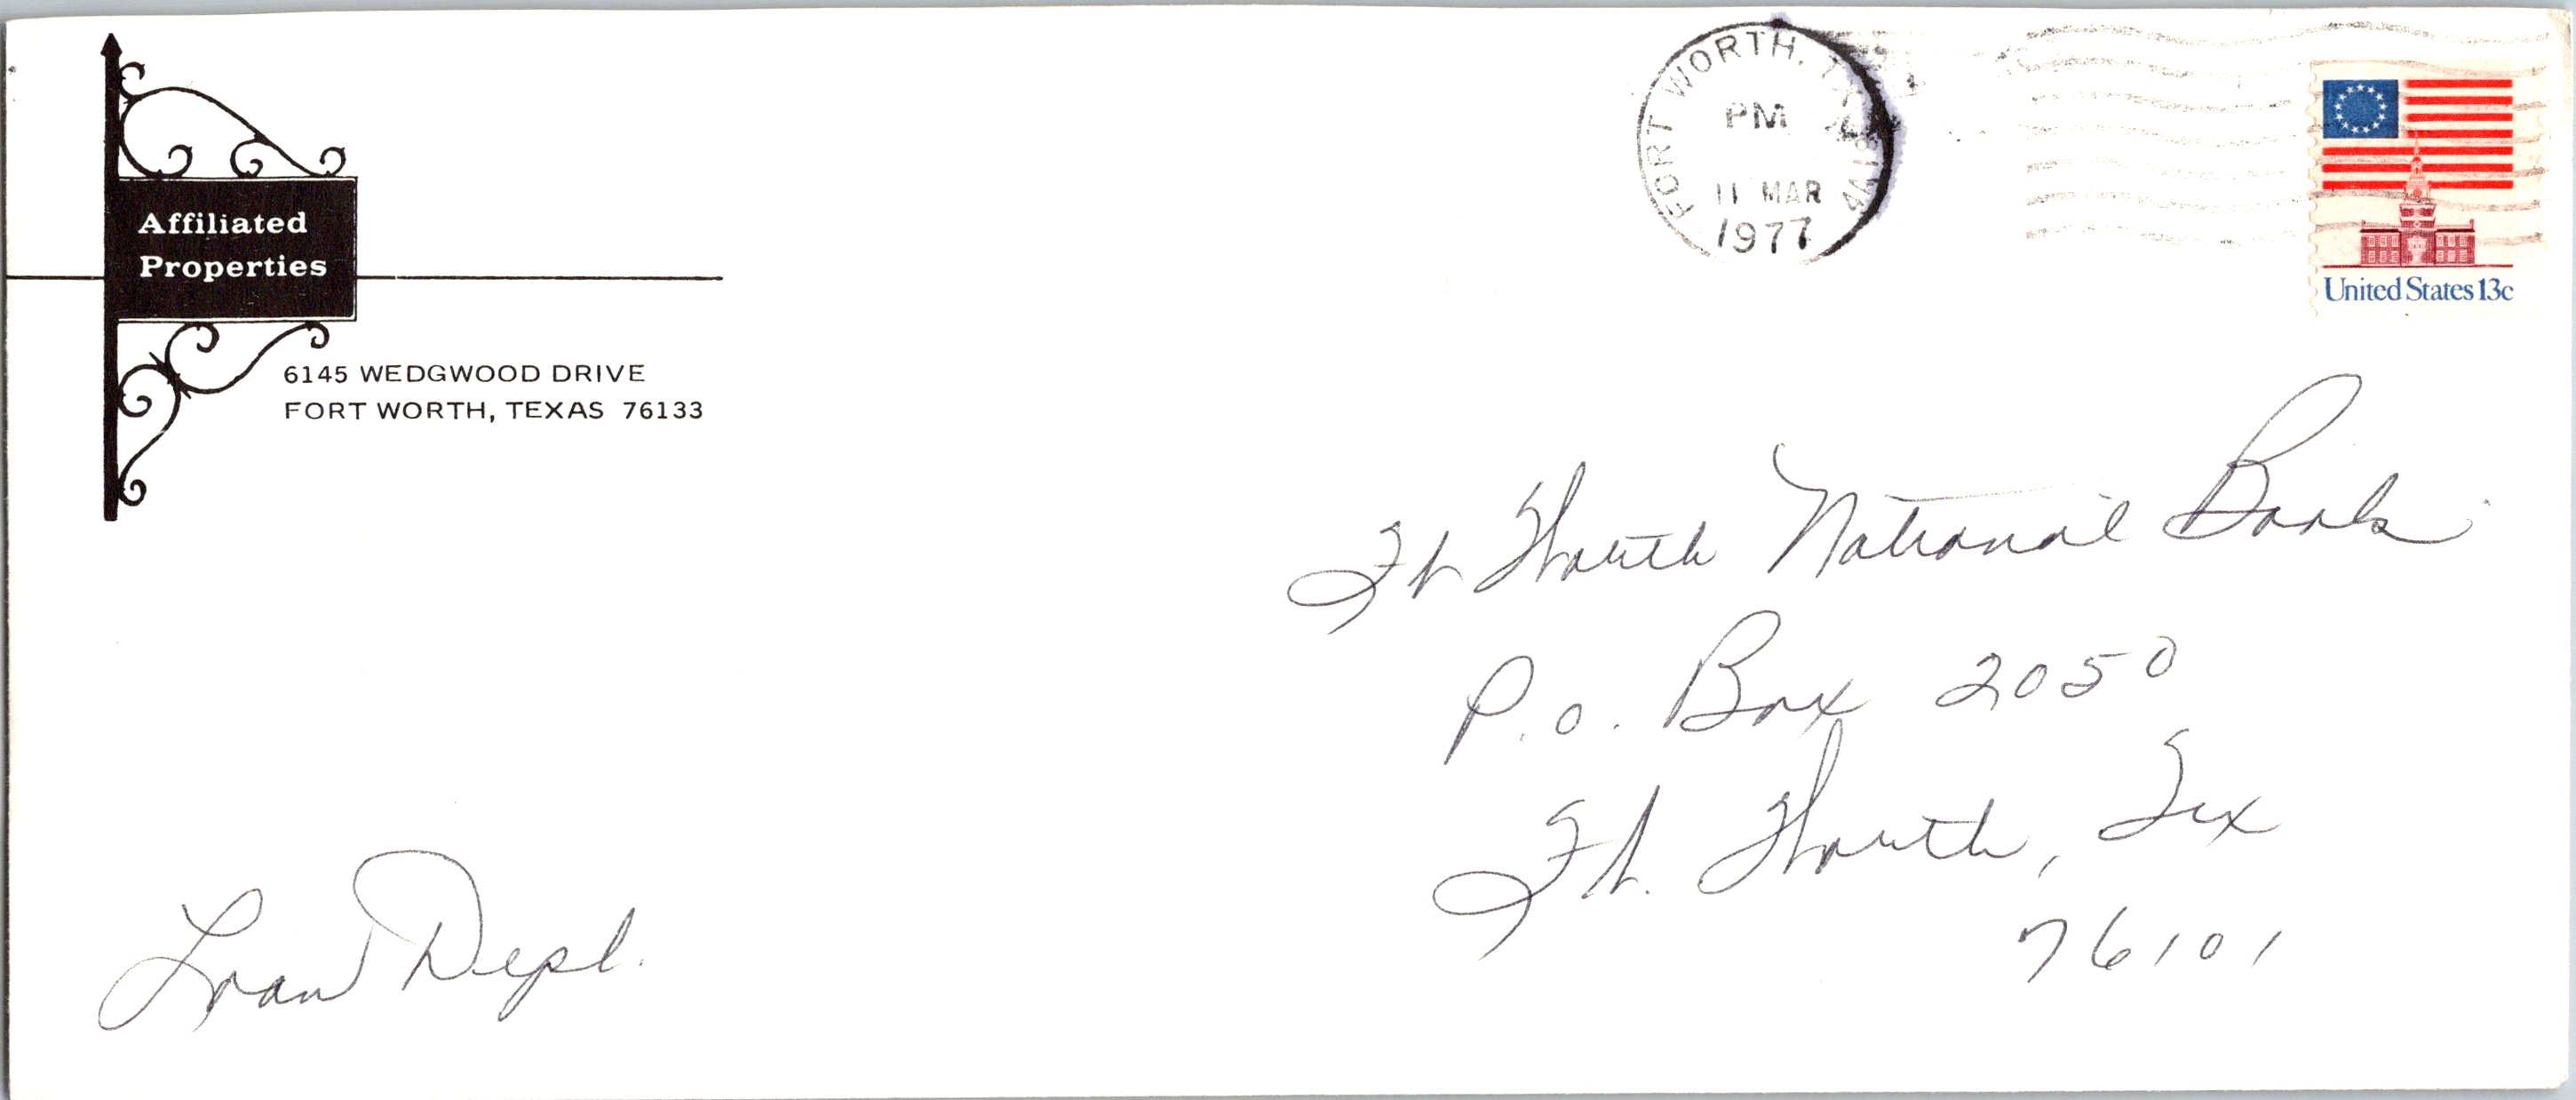 Affiliated
Properties
6145 WEDGWOOD DRIVE
FORT WORTH, TEXAS 76133
FORT WORTH, TX
PM
11 MAR
1977
United States 13c
Ft Worth National Bank
P.O. Box 2050
Ft. Worth, Tex
76101
Loan Dept.